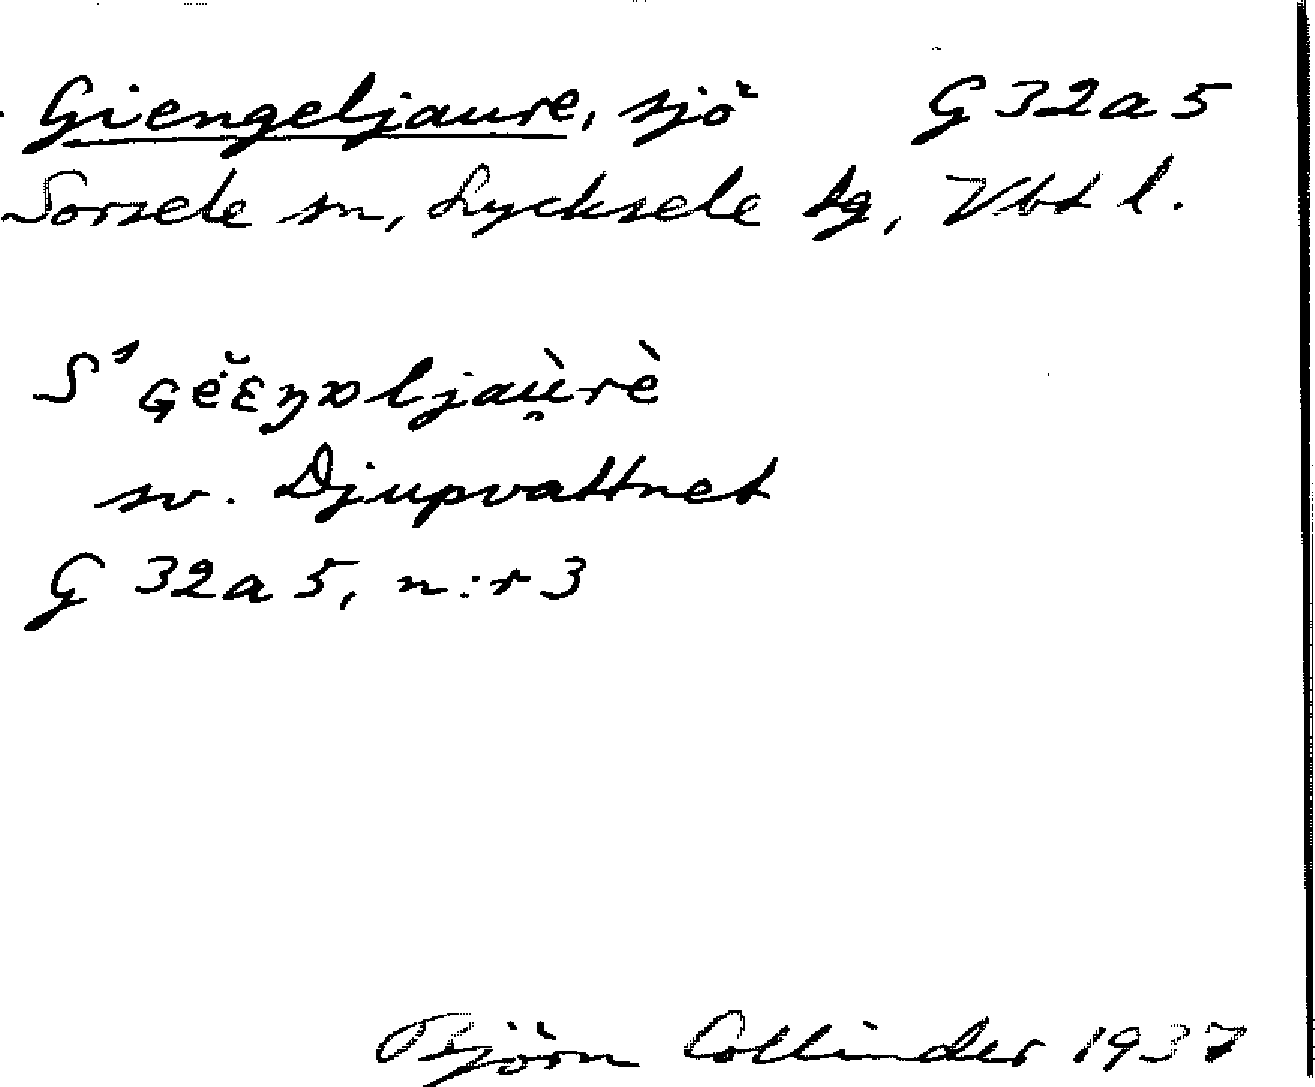 Giengeljaure, sjö G 32 a 5
Sorsele sn, Lycksele tg, Vbt l.
S¹ ɢĕ̀ɛŋɒljaù̯rè
sv. Djupvattnet
G 32 a 5, n:r 3
Björn Collinder 1937